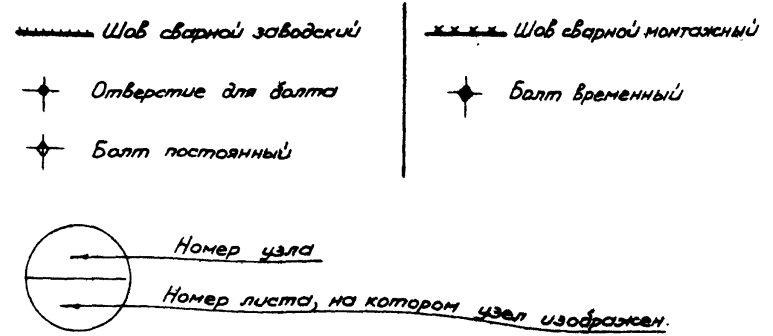 Шов сварной заводский
Отверстие для болта
Болт постоянный
Шов сварной монтажный
Болт временный
Номер узла
Номер листа, на котором узел изображен.